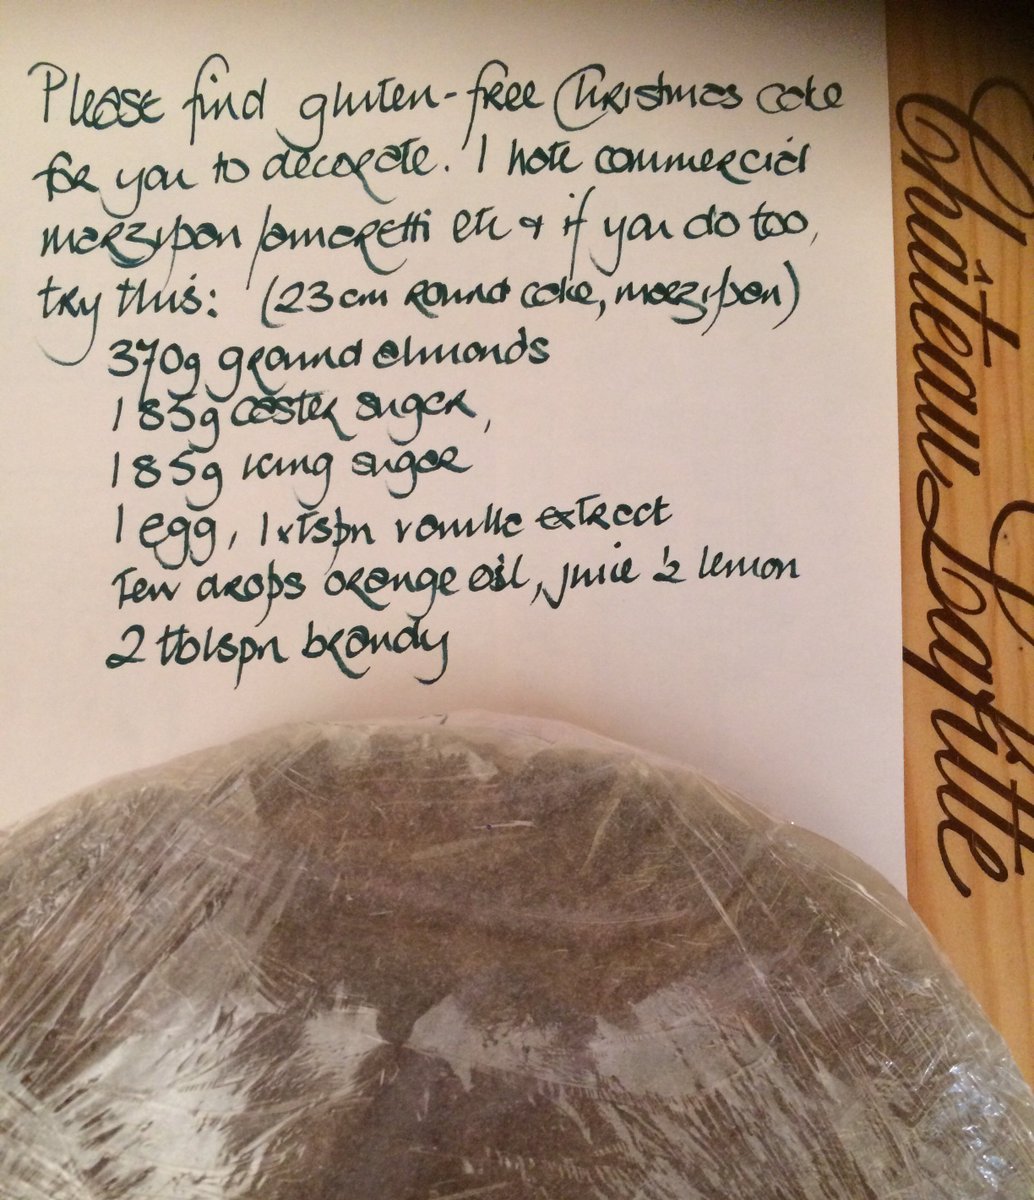 Please find gluten-free Christmas cake
for you to decorate. I hate commercial
marzipan/amaretti etc & if you do too,
try this: (23cm round cake, marzipan)
370g ground almonds
185g caster sugar,
185g icing sugar
1 egg, 1xtspn vanilla extract
Few drops orange oil, juice ½ lemon
2 tblspn brandy
Château Lafitte